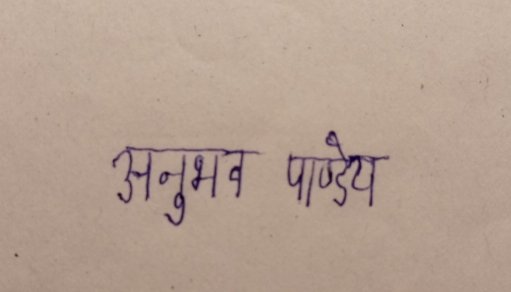 अनुभव पाण्डेय